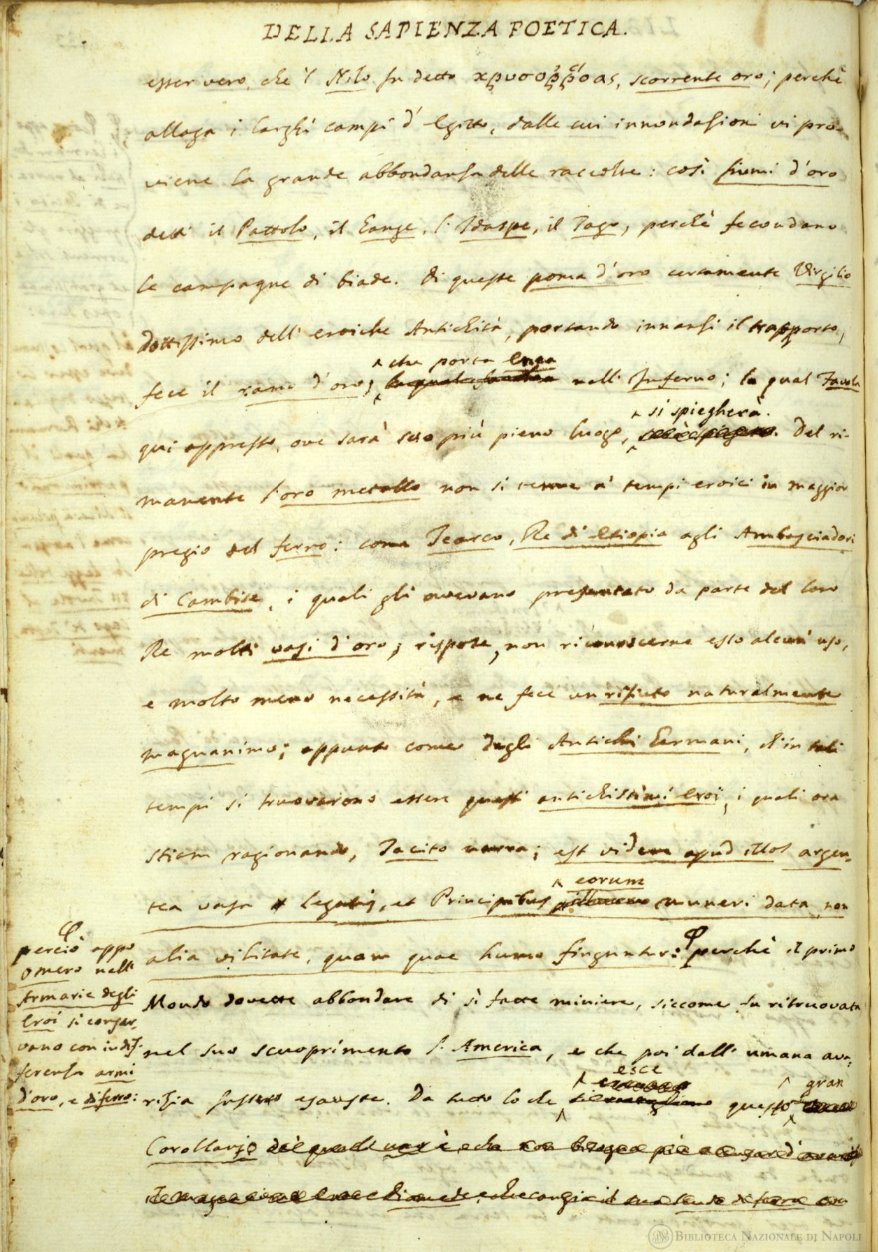 DELLA SAPIENZA POETICA.
esser vero, che 'l Nilo fu detto χρυσοῤῥόας, scorrente oro; perchè
allaga i larghi campi d' Egitto, dalle cui innondazioni vi pro-
viene la grande abbondanza delle raccolte: così fiumi d'oro
detti il Pattolo, il Gange, l' Idaspe, il Tago, perchè fecondano
le campagne di biade. Di queste poma d'oro certamente Virgilio
dottissimo dell' eroiche Antichità, portando innanzi il trapporto,
^che porta Enea
fece il ramo d'oro, nell' Inferno; la qual Favola
^si spiegherà.
qui appresso, ove sarà suo più pieno luogo, Del ri-
manente l'oro metallo non si tenne a' tempi eroici in maggior
pregio del ferro: come Tearco, Re di Etiopia agli Ambasciadori
di Cambise, i quali gli avevano presentato da parte del loro
Re molti vasi d'oro; rispose, non riconoscerne esso alcun uso,
e molto meno necessità, e ne fece un rifiuto naturalmente
magnanimo; appunto come degli Antichi Germani, ch'in tali
tempi si truovarono essere questi antichissimi Eroi, i quali ora
stiam ragionando, Tacito narra; est videre apud illos argen-
tea vasa Legatis, et Principibus ^eorum muneri data, non
alia vilitate, quam quae humo finguntur: φ perchè il primo
Mondo dovette abbondare di sì fatte miniere, siccome fu ritruovata
nel suo scuoprimento l' America, e che poi dall' umana ava-
^esce ^gran
rizia fussero esauste. Da tutto lo che questo
Corollario
φ
perciò appo
Omero nell'
Armarie degli
Eroi si conser-
vano con indif-
ferenza armi
d'oro, e di ferro:
BIBLIOTECA NAZIONALE DI NAPOLI